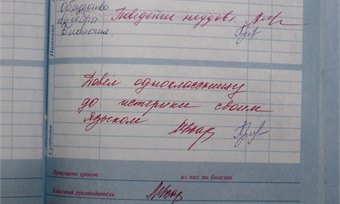 Общество
Алгебра
Биология
Поведение неудов.
Довёл одноклассницу
до истерики своим
языком
Пропущено уроков из них по болезни
Классный руководитель